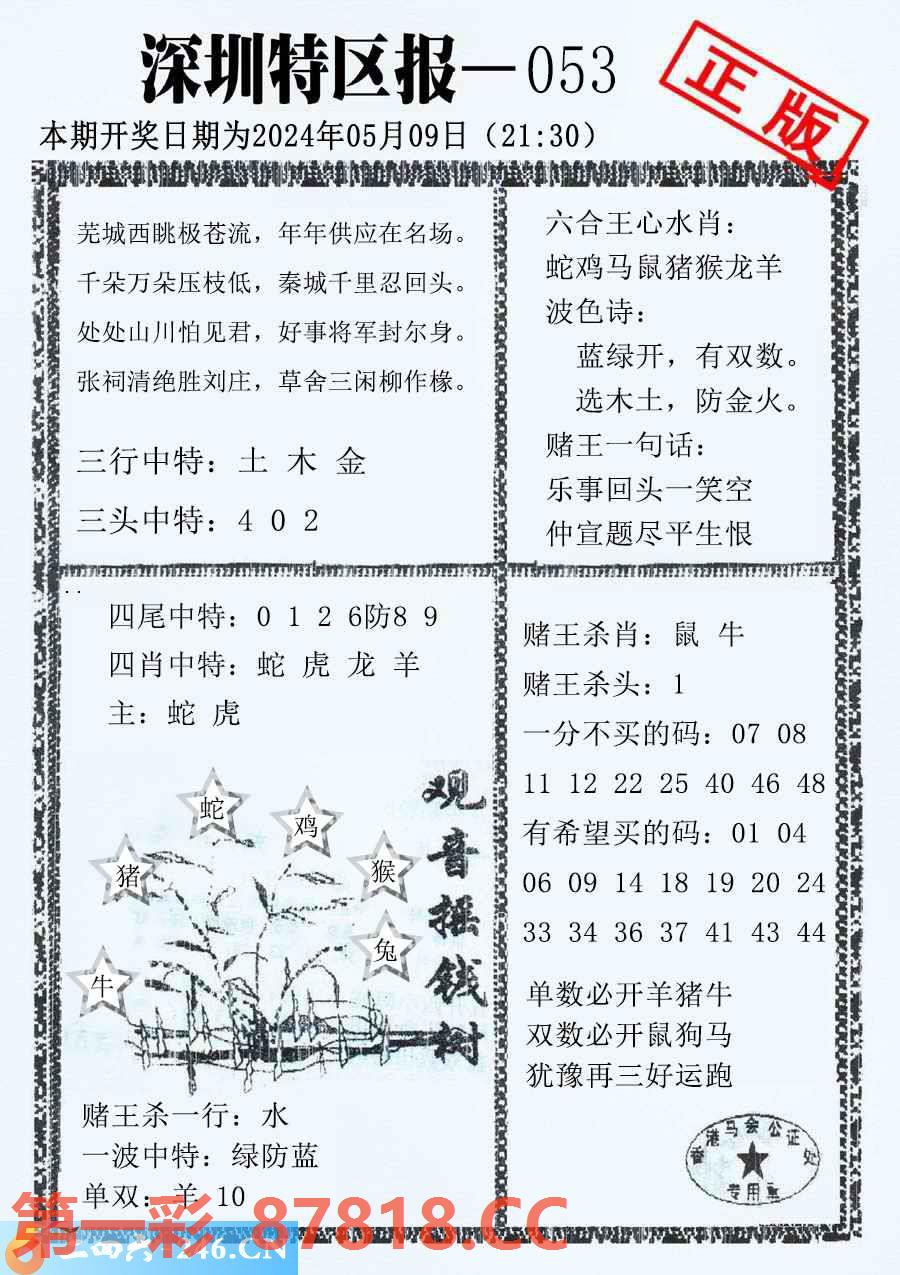 深圳特区报—053
正版
本期开奖日期为2024年05月09日（21:30）
芜城西眺极苍流，年年供应在名场。
千朵万朵压枝低，秦城千里忍回头。
处处山川怕见君，好事将军封尔身。
张祠清绝胜刘庄，草舍三闲柳作椽。
三行中特：土 木 金
三头中特：4 0 2
六合王心水肖：
蛇鸡马鼠猪猴龙羊
波色诗：
蓝绿开，有双数。
选木土，防金火。
赌王一句话：
乐事回头一笑空
仲宣题尽平生恨
四尾中特：0 1 2 6防8 9
四肖中特：蛇 虎 龙 羊
主：蛇 虎
蛇
鸡
猪
猴
兔
牛
观音摇钱树
赌王杀一行：水
一波中特：绿防蓝
单双：羊 10
赌王杀肖：鼠 牛
赌王杀头：1
一分不买的码：07 08
11 12 22 25 40 46 48
有希望买的码：01 04
06 09 14 18 19 20 24
33 34 36 37 41 43 44
单数必开羊猪牛
双数必开鼠狗马
犹豫再三好运跑
香港马会公证处
专用章
第一彩 87818.CC
246.CN